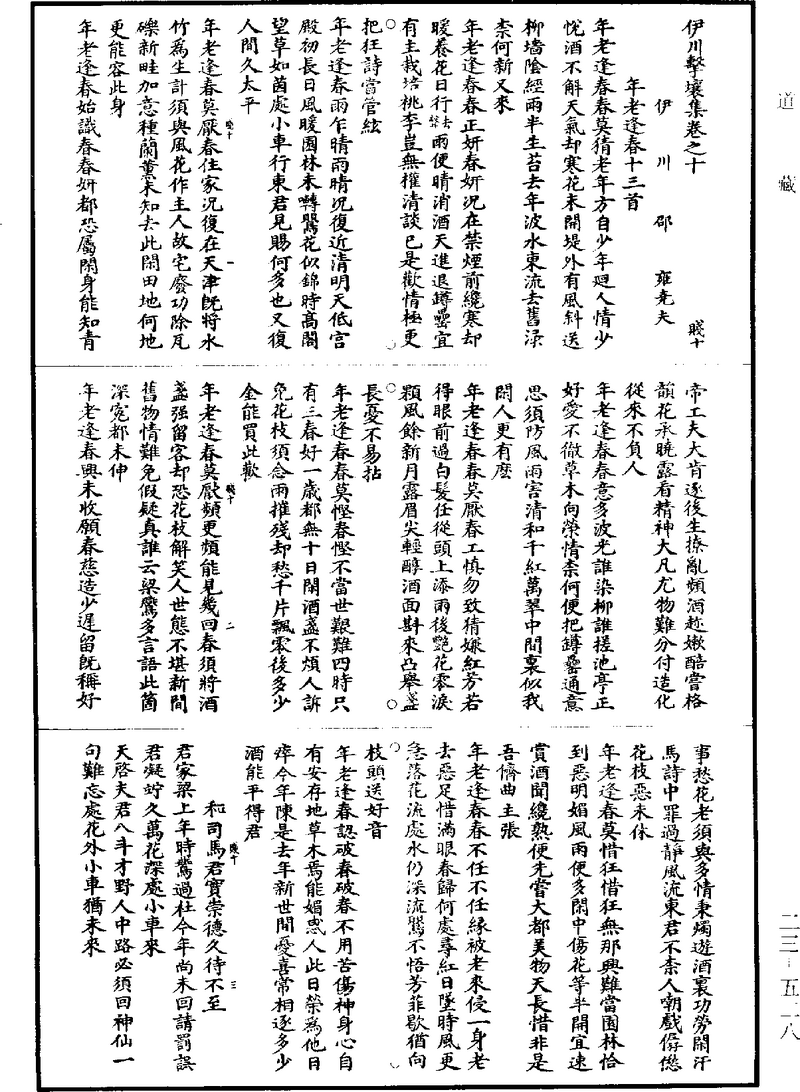 道藏
伊川擊壤集卷之十
賤十
伊川邵雍堯夫
年老逢春十三首
年老逢春春莫猜老年方自少年廻人情少
恱酒不解天氣却寒花未開堤外有風斜送
柳墻陰經雨半生苔去年波水東流去舊渌
柰何新又來
年老逢春春正妍春妍況在禁煙前纔寒却
暖養花日行去聲雨便晴消酒天進退罇罍宜
有主栽培桃李豈無權清談已是歡情極更
把狂詩當管絃
年老逢春雨乍晴雨晴況復近清明天低宫
殿初長日風暖園林未囀鶯花似錦時髙閣
望草如茵處小車行東君見賜何多也又復
人間久太平
年老逢春莫厭春住家況復在天津旣將水
竹為生計須與風花作主人故宅廢功除瓦
礫新畦加意種蘭薰未知去此閑田地何地
更能容此身
年老逢春始識春春妍都恐屬閑身能知青
帝工夫大肯逐後生撩亂頻酒趂嫰醅當格
韻花承曉露看精神大凡尤物難分付造化
從來不負人
年老逢春春意多波光誰染柳誰搓池亭正
好愛不徹草木向榮情柰何便把罇罍通意
思須防風雨害清和千紅萬翠中間裏似我
閑人更有麽
年老逢春春莫厭春工慎勿致猜嫌紅芳若
得眼前過白髪任從頭上添雨後艷花零淚
顆風餘新月露眉尖輕醇酒面斟來凸舉盞
長憂不易拈
年老逢春春莫慳春慳不當世艱難四時只
有三春好一歲都無十日閑酒盞不煩人訴
免花枝須念雨摧殘却愁千片飄零後多少
金能買此歡
年老逢春莫厭頻更頻能見幾回春須將酒
盞强留客却恐花枝解笑人世態不堪新間
舊物情難免假疑真誰云梁鷰多言語此箇
深寃都未伸
年老逢春興未收願春慈造少遲留旣稱好
事愁花老須與多情秉燭遊酒裏功勞閑汗
馬詩中罪過靜風流東君不柰人嘲戲僝僽
花枝惡未休
年老逢春莫惜狂惜狂無那興難當園林恰
到惡明媚風雨便多閑中傷花等半開宜速
賞酒聞纔熟便先嘗大都美物天長惜非是
吾儕曲主張
年老逢春春不任不任緣被老來侵一身老
去惡足惜滿眼春歸何處尋紅日墜時風更
急落花流處水仍深流鶯不悟芳菲歇猶向
枝頭送好音
年老逢春認破春破春不用苦傷神身心自
有安存地草木焉能媚惑人此日榮為他日
瘁今年陳是去年新世間憂喜常相逐多少
酒能平得君
和司馬君實崇德久待不至
君家梁上年時鷰過社今年尚未回請罰誤
君凝竚久萬花深處小車來
天啓夫君八斗才野人中路必須回神仙一
句難忘處花外小車猶未來
賤十 一
賤十 二
賤十 三
二三-五二八